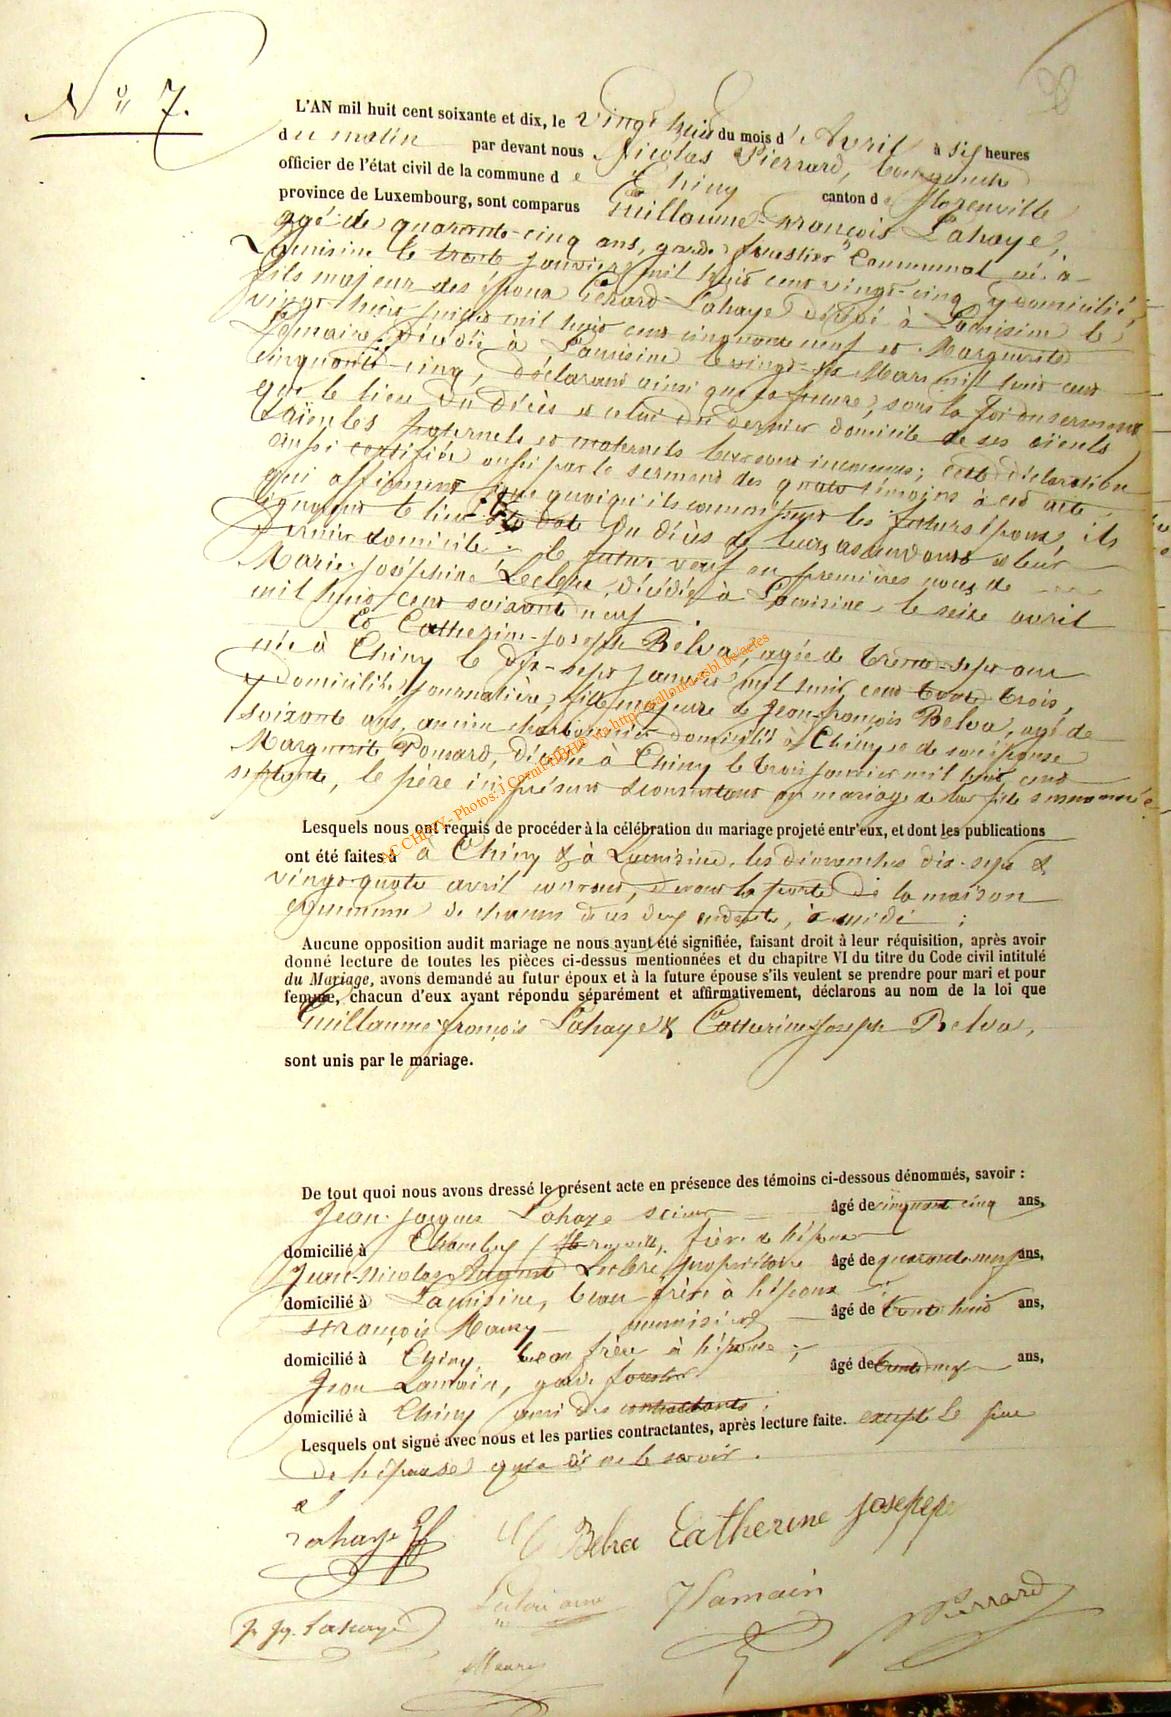 N° 7.
98
L'AN mil huit cent soixante et dix, le vingt huit du mois d'Avril à six heures
du matin par devant nous Nicolas Pierrard, bourgmestre
officier de l'état civil de la commune de Chiny canton de Florenville
province de Luxembourg, sont comparus Guillaume-François Lahaye,
agé de quarante-cinq ans, garde forestier communal né à
Lacuisine le trente janvier mil huit cent vingt-cinq y domicilié,
fils majeur des époux Gérard Lahaye décédé à Lacuisine le
vingt huit juillet mil huit cent cinquante neuf et Marguerite
Lemaire, décédée à Lacuisine le vingt-six Mars mil huit cent
cinquante-cinq, déclarant ainsi que la future, sous la foi du serment
que le lieu du décès et celui du dernier domicile de ses aïeuls
et aïeules paternels et maternels leur sont inconnus; cette déclaration
aussi certifiée aussi par le serment des quatre témoins à cet acte
qui affirment que quoiqu'ils connaissent les futurs époux, ils
ignorent le lieu du décès de leurs ascendants et leur
dernier domicile. le futur veuf en premières noces de
Marie-Joséphine Leclère, décédée à Lacuisine le seize avril
mil huit cent soixante neuf
Et Catherine-Joseph Belva, agée de trente-sept ans
née à Chiny le dix-sept janvier mil huit cent trente trois,
y domiciliée, journalière, fille majeure de Jean-François Belva, agé de
soixante ans, ancien charbonnier domicilié à Chiny et de son épouse
Marguerite Ponsard, décédée à Chiny le trois janvier mil huit cent
septante, le père ici présent et consentant au mariage de sa fille susnommée
AC CHINY - Photos: J Cornil Fabrie via http://wallonia-asbl.be/actes
Lesquels nous ont requis de procéder à la célébration du mariage projeté entr'eux, et dont les publications
ont été faites à à Chiny & à Lacuisine, les dimanches dix-sept &
vingt-quatre avril courant, devant la porte de la maison
commune de chacun de ces deux endroits, à midi ;
Aucune opposition audit mariage ne nous ayant été signifiée, faisant droit à leur réquisition, après avoir
donné lecture de toutes les pièces ci-dessus mentionnées et du chapitre VI du titre du Code civil intitulé
du Mariage, avons demandé au futur époux et à la future épouse s'ils veulent se prendre pour mari et pour
femme, chacun d'eux ayant répondu séparément et affirmativement, déclarons au nom de la loi que
Guillaume-François Lahaye & Catherine Joseph Belva,
sont unis par le mariage.
De tout quoi nous avons dressé le présent acte en présence des témoins ci-dessous dénommés, savoir :
Jean-Jacques Lahaye scieur âgé de cinquante cinq ans,
domicilié à frère de l'époux
Jean-Nicolas August Leclère, propriétaire âgé de quarante neuf ans,
domicilié à Lacuisine, beau frère à l'époux
François Maury menuisier âgé de trente huit ans,
domicilié à Chiny, beau frère à l'épouse ;
Jean Lamain, garde forestier âgé de trente neuf ans,
domicilié à Chiny ami des contractants ;
Lesquels ont signé avec nous et les parties contractantes, après lecture faite. excepté le père
de l'épouse qui a dit ne le savoir.
Lahaye Gf
Belva Catherine Josepepe
J. Jq. Lahaye
J Lamain
Pierrard
Maury